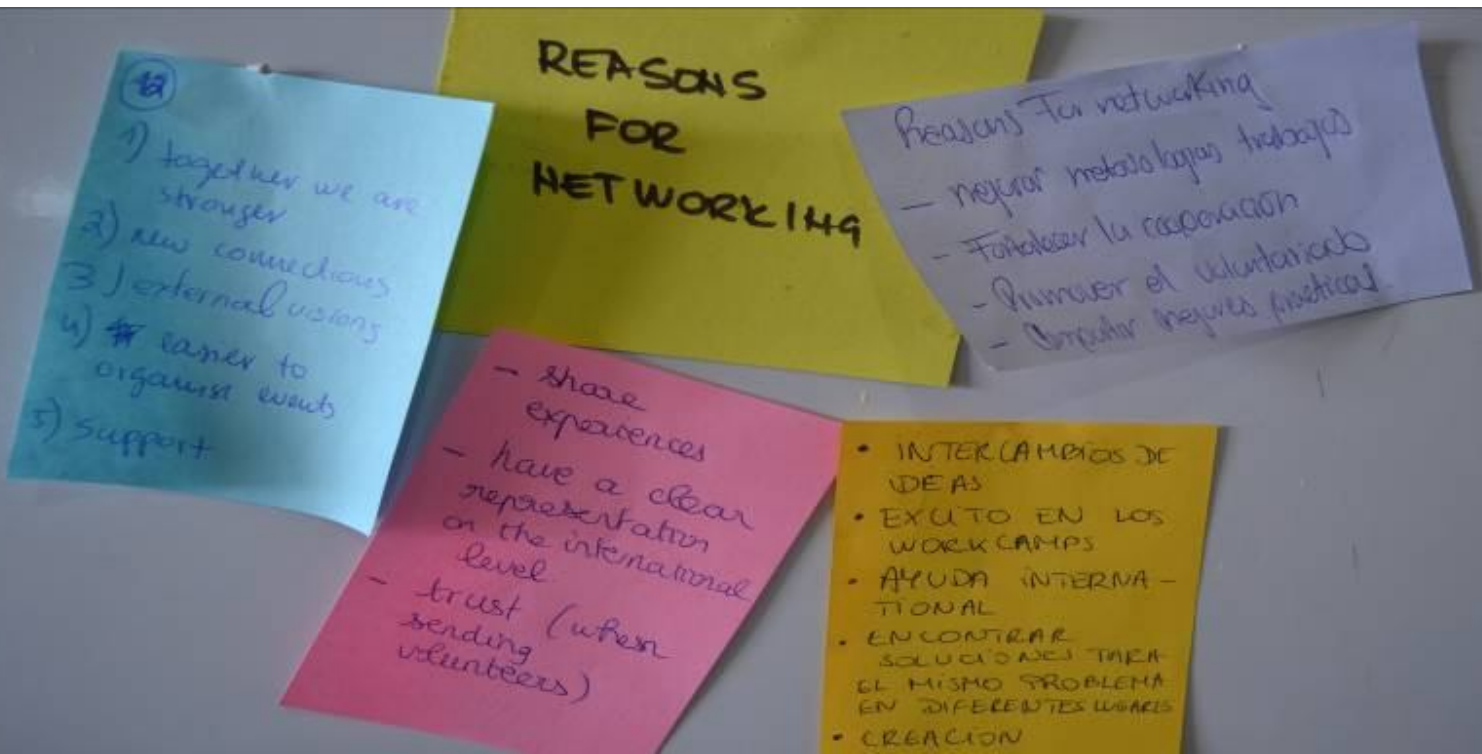 REASONS
FOR
NETWORKING
12
1) together we are
stronger
2) new connections
3) external visions
4) easier to
organise events
5) support
Reasons For networking
- mejorar metodologias trabajos
- Fortalecer la cooperación
- Promover el voluntariado
- mejores practicas
- share
experiences
- have a clear
representation
on the international
level
- trust (when
sending
volunteers)
• INTERCAMBIOS DE
IDEAS
• EXCITO EN LOS
WORKCAMPS
• AYUDA INTERNA-
TIONAL
• ENCONTRAR
SOLUCIONES PARA
EL MISMO PROBLEMA
EN DIFERENTES LUGARES
• CREACION